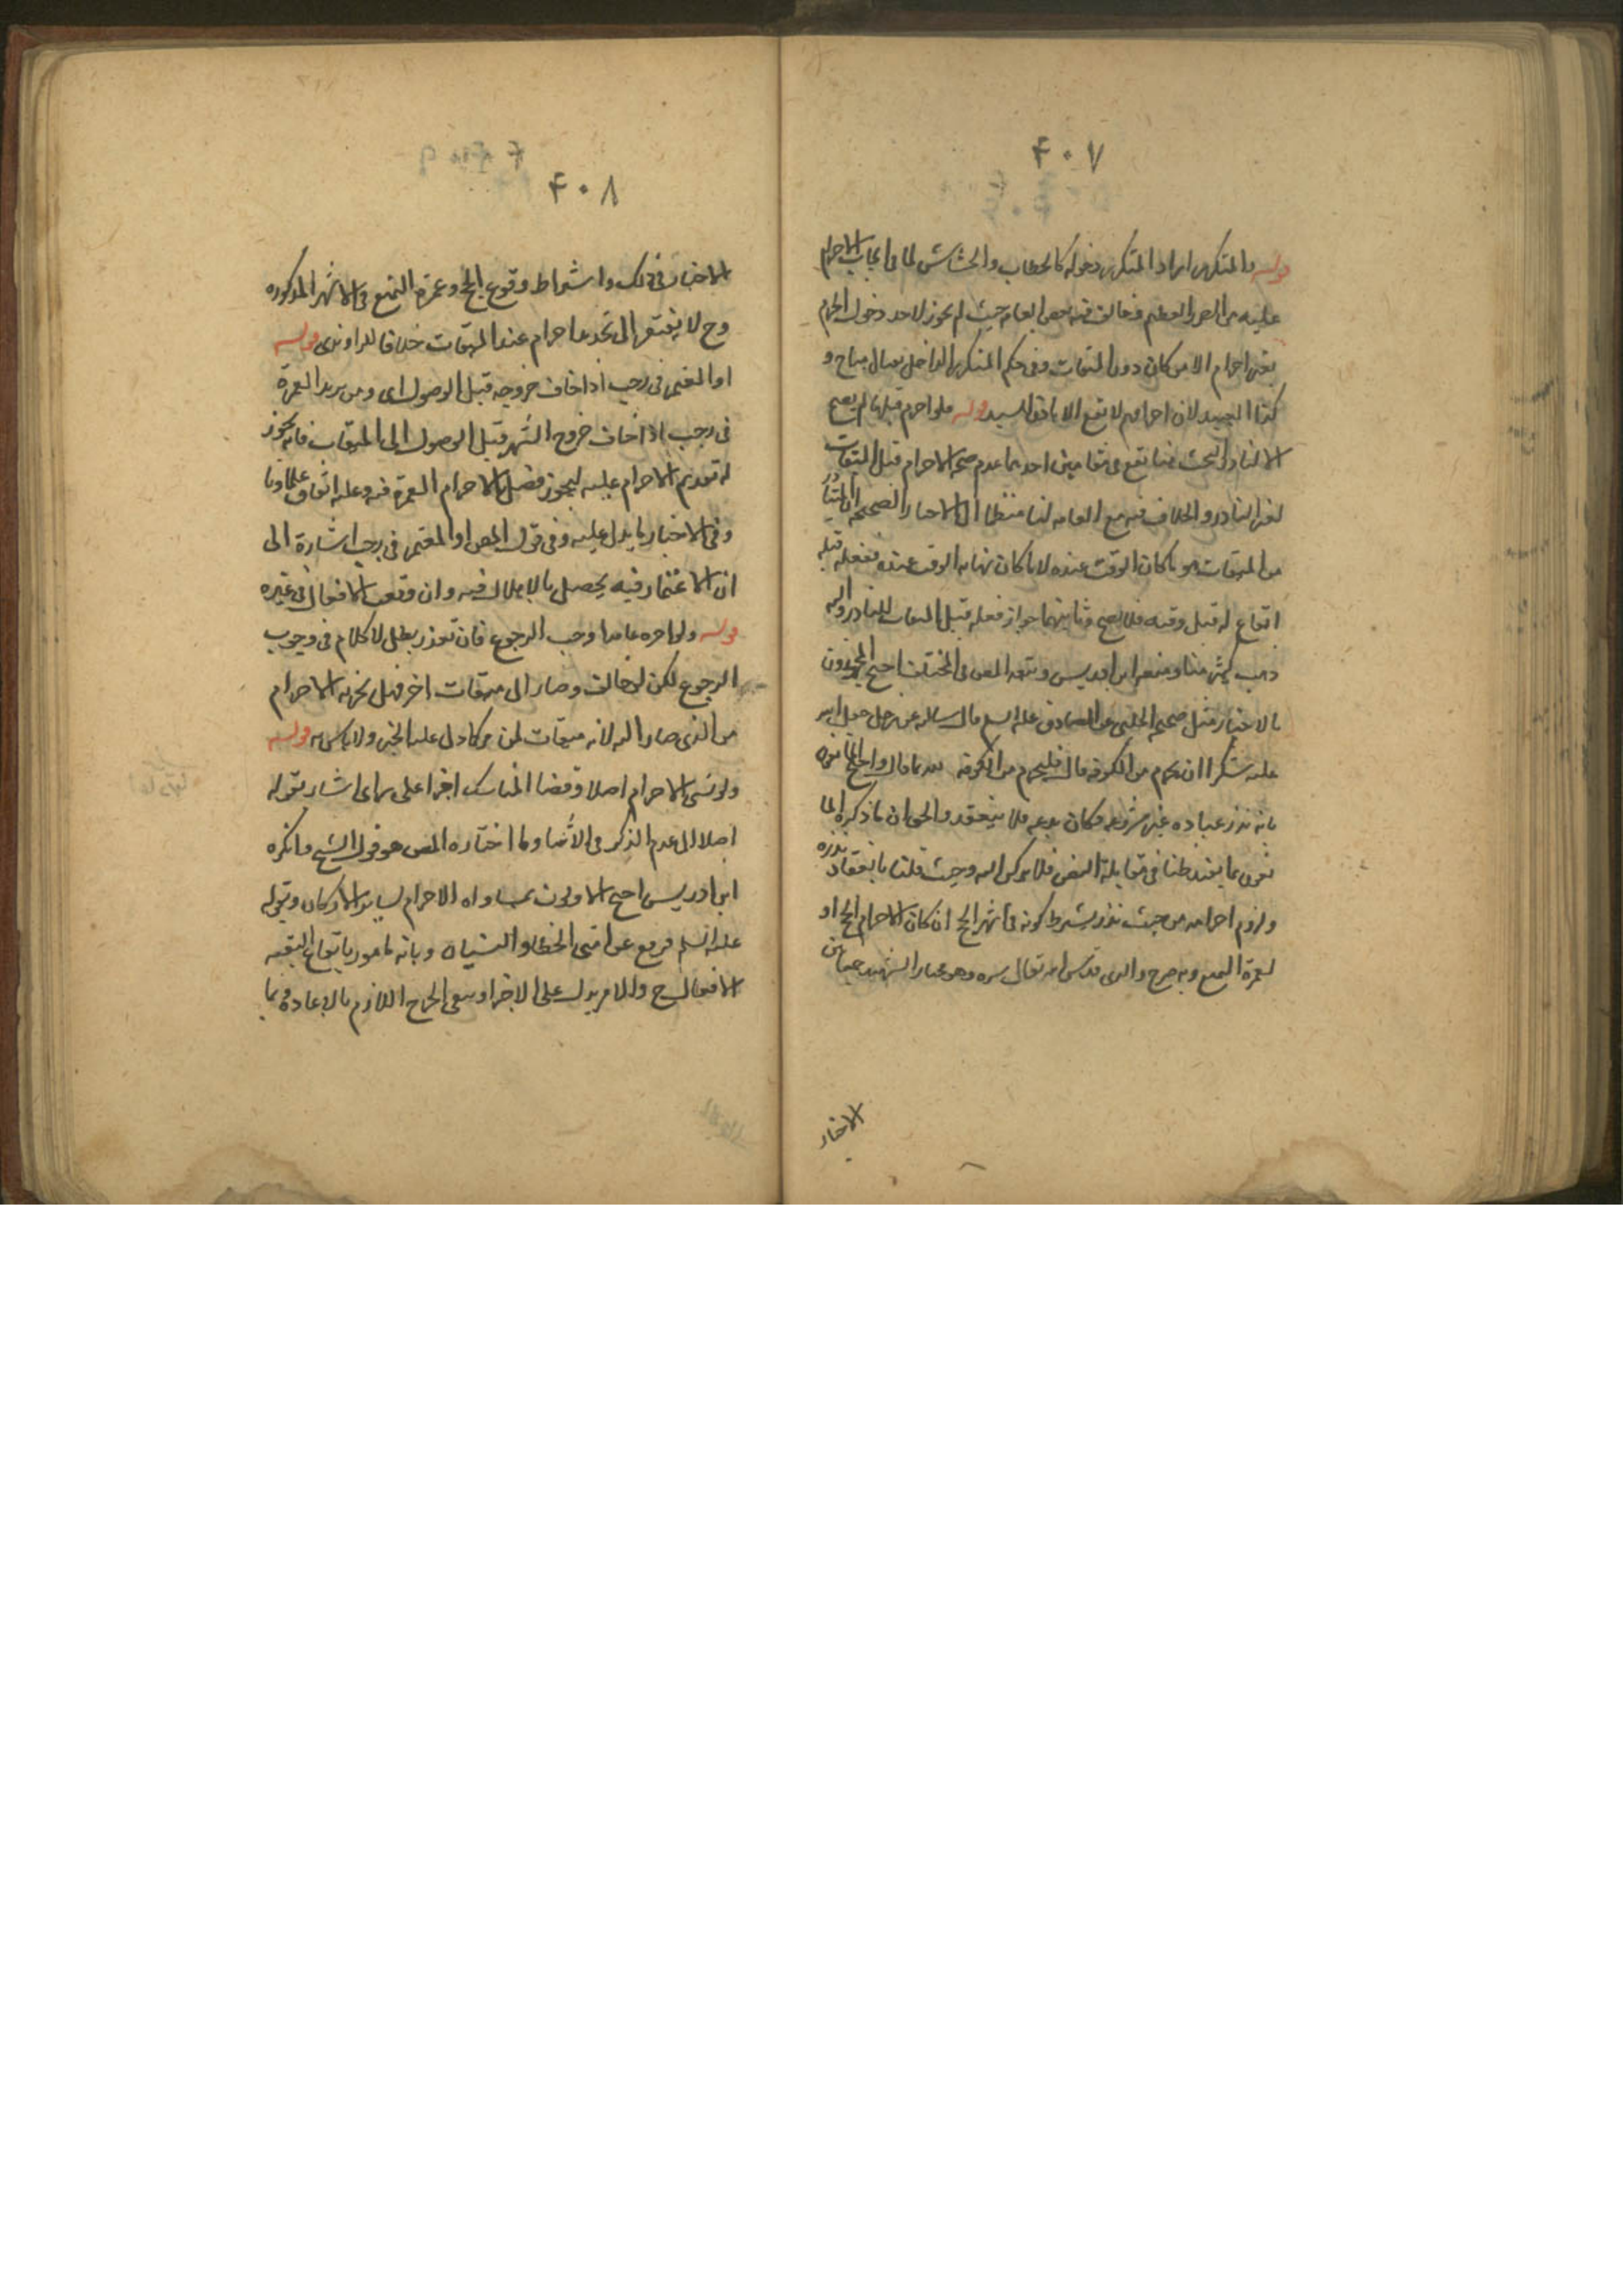 ۴۰۷
قوله والمتكرر اراد المتكرر دخوله كالحطاب والحشاش لما فى ايجاب الاحرام
عليه من الضرر العظيم وخالف فيه بعض العامه حيث لم يجوز لاحد دخول الحرم
بغير احرام الا من كان دون الميقات وفى حكم المتكرر الداخل لقتال مباح و
كذا العبيد لان احرامهم لا يقع الا باذن السيد قوله ولو احرم قبلها لم يصح
الا للناذر البحث هنا يقع فى مقامين احدهما عدم صحة الاحرام قبل الميقات
لغير الناذر والخلاف فيه مع العامه لنا الاخبار الصحيحه
من الميقات هو ما كان الوقت عنده لا ما كان نهايه الوقت عنده ففعله قبله
ايقاع له قبل وقته فلا يصح وثانيهما جواز فعله قبل الميقات للناذر واليه
ذهب كثير منا ومنعه ابن ادريس وتبعه المص فى المختلف احتج المجوزون
بالاخبار مثل صحيحه الحلبى عن الصادق عليه السلم قال سالته عن رجل جعل لله
عليه شكرا ان يحرم من الكوفه قال فليحرم من الكوفه بما قال واحتج المانعون
بانه نذر عباده غير مشروعه فكان بدعه فلا ينعقد والحق ان ما ذكره
انما يفيد ظنا فى مقابلة النص فلا يركن اليه وحيث قلنا بانعقاد نذره
ولزوم احرامه من حيث نذر يشترط كونه فى اشهر الحج ان كان الاحرام لحج او
لعمرة التمتع وبه صرح والدى قدس الله تعالى سره وهو
الاخبار
۴۰۸
الاخبار فى ذلك واشتراط وقوع الحج وعمرة التمتع فى الاشهر المذكوره
وح لا يفتقر الى تجديد احرام عند الميقات خلافا للراوندى قوله
او المعتمر فى رجب اذا خاف خروجه قبل الوصول اى ومن يريد العمرة
فى رجب اذا خاف خروج الشهر قبل الوصول الى الميقات فانه يجوز
له تقديم الاحرام عليه ليحوز فضل الاحرام العمرة فيه وعليه اتفاق علماونا
وفى الاخبار ما يدل عليه وفى قول المص او المعتمر فى رجب اشارة الى
ان الاعتمار فيه يحصل بالاهلال فيه وان وقعت الافعال فى غيره
قوله ولو اخره عامدا وجب الرجوع فان تعذر بطل لا كلام فى وجوب
الرجوع لكن لو خالف وصار الى ميقات اخر قيل يجزيه الاحرام
من الذى صار اليه لانه ميقات لمن مر به كما دل عليه الخبر ولا باس به قوله
ولو نسى الاحرام اصلا وقضا المناسك اجزا على راى اشار بقوله
اصلا الى عدم الذكر فى الاثناء وما اختاره المص هو قول الشيخ وانكره
ابن ادريس احتج الاولون بمساواه الاحرام لساير الاركان وبقوله
عليه السلم رفع عن امتى الخطا والنسيان وبانه مامور بايقاع بقيه
الافعال ح والامر يدل على الاجزا وبنفى الحرج اللازم بالاعادة وبما